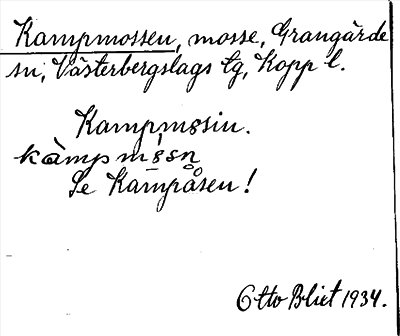 Kampmossen, mosse, Grangärde
sn, Västerbergslags tg, Kopp l.
Kampmosin.
kàmpmòsn
Se Kampåsen!
Otto Blixt 1934.